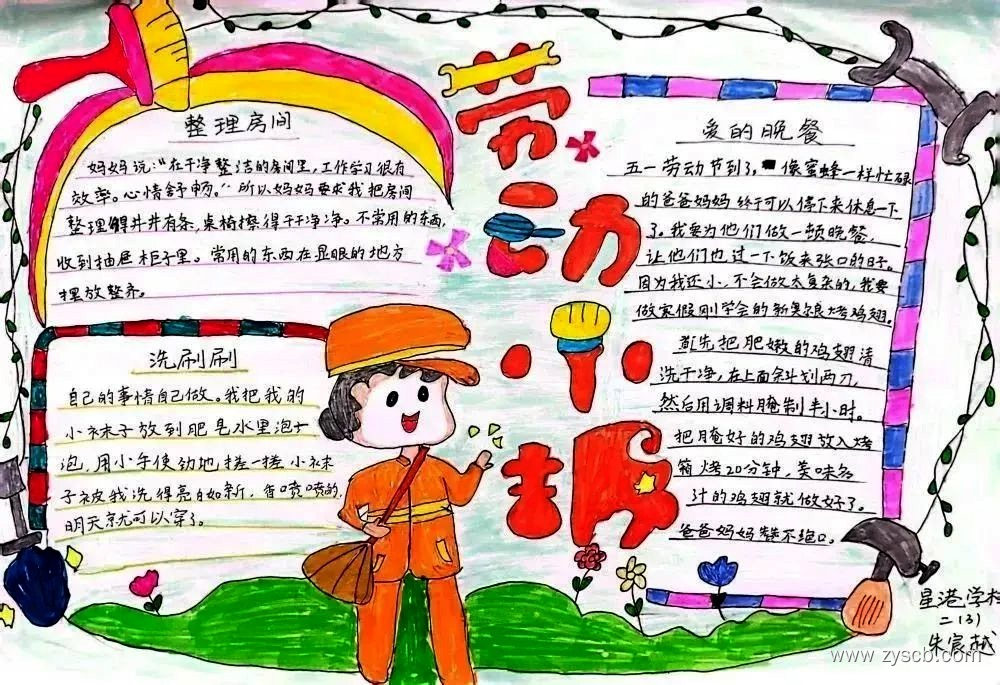 劳动小报
整理房间
妈妈说:“在干净整洁的房间里,工作学习很有
效率。心情舒畅。”所以妈妈要求我把房间
整理得井井有条,桌椅擦得干干净净。不常用的东西,
收到抽屉柜子里。常用的东西在显眼的地方
摆放整齐。
洗刷刷
自己的事情自己做。我把我的
小袜子放到肥皂水里泡一
泡,用小手使劲地搓一搓,小袜
子被我洗得亮白如新,香喷喷的,
明天就可以穿了。
爱的晚餐
五一劳动节到了,像蜜蜂一样忙碌
的爸爸妈妈终于可以停下来休息一下
了。我要为他们做一顿晚餐,
让他们也过一下饭来张口的日子。
因为我还小,不会做太复杂的,我要
做寒假刚学会的新奥尔良烤鸡翅。
首先把肥嫩的鸡翅清
洗干净,在上面斜划两刀,
然后用调料腌制半小时。
把腌好的鸡翅放入烤
箱烤20分钟,美味多
汁的鸡翅就做好了。
爸爸妈妈赞不绝口。
星港学校
二(3)
朱宸越
www.zyscb.com